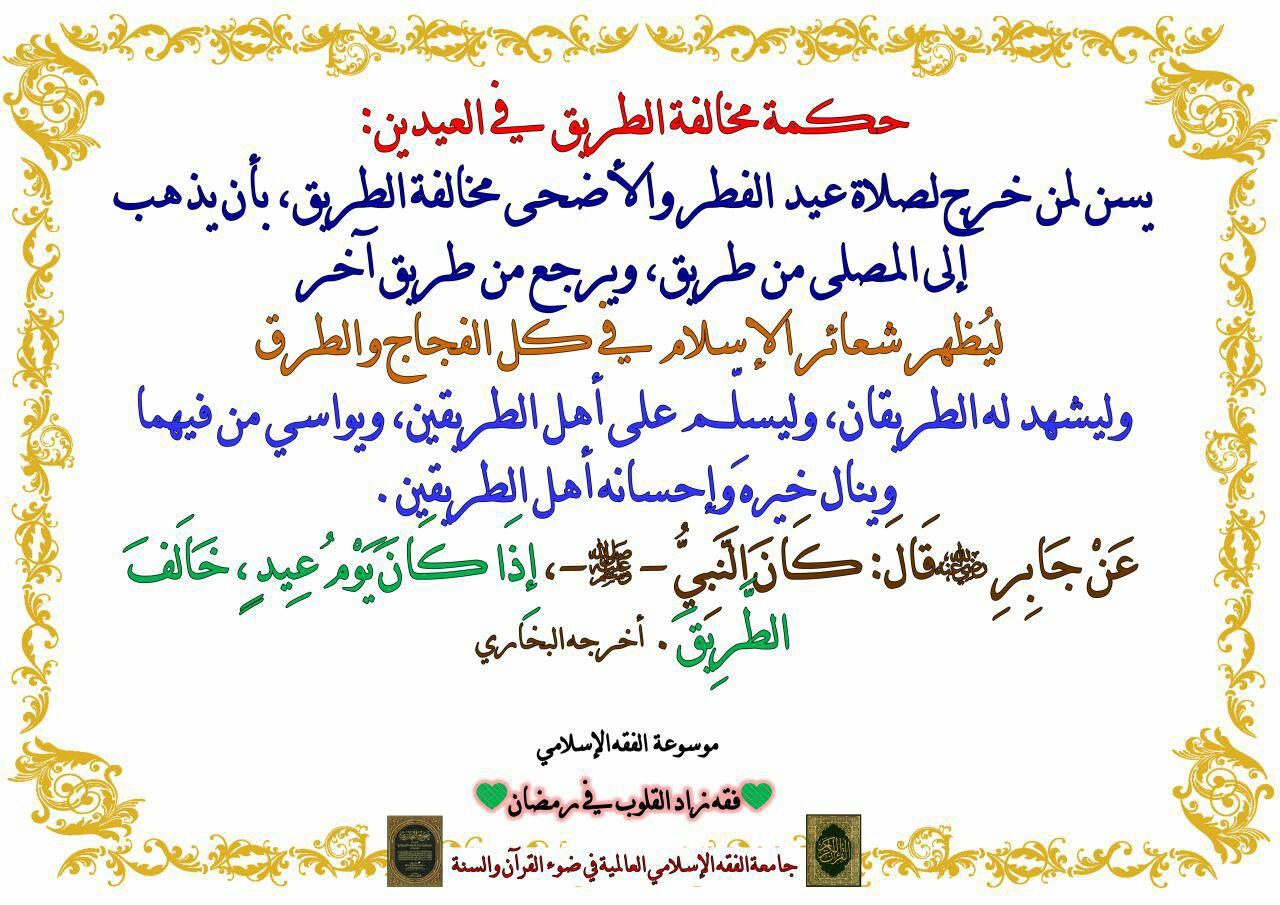 حكمة مخالفة الطريق في العيدين:
يسن لمن خرج لصلاة عيد الفطر والأضحى مخالفة الطريق، بأن يذهب
إلى المصلى من طريق، ويرجع من طريق آخر
ليُظهر شعائر الإسلام في كل الفجاج والطرق
وليشهد له الطريقان، وليسلّم على أهل الطريقين، ويواسي من فيهما
وينال خيره وَإحسانه أهل الطريقين .
عَنْ جَابِرِ رضي الله عنه قَالَ: كَانَ الَّنَبيُّ - ﷺ -، إِذَا كَانَ يَوْمُ عِيدٍ، خَالَفَ
الطَّرِيقَ . أخرجه البخاري
موسوعة الفقه الإسلامي
💚فقه زاد القلوب في رمضان💚
جامعة الفقه الإسلامي العالمية في ضوء القرآن والسنة